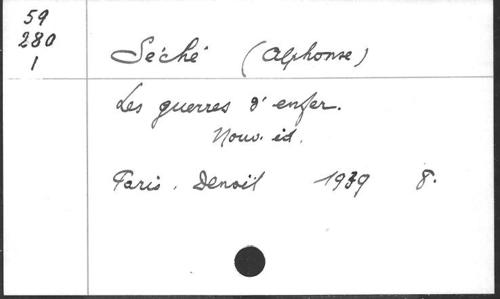 59
280
1
Séché (Alphonse)
Les guerres d'enfer.
Nouv. éd.
Paris. Denoël 1939 8°.